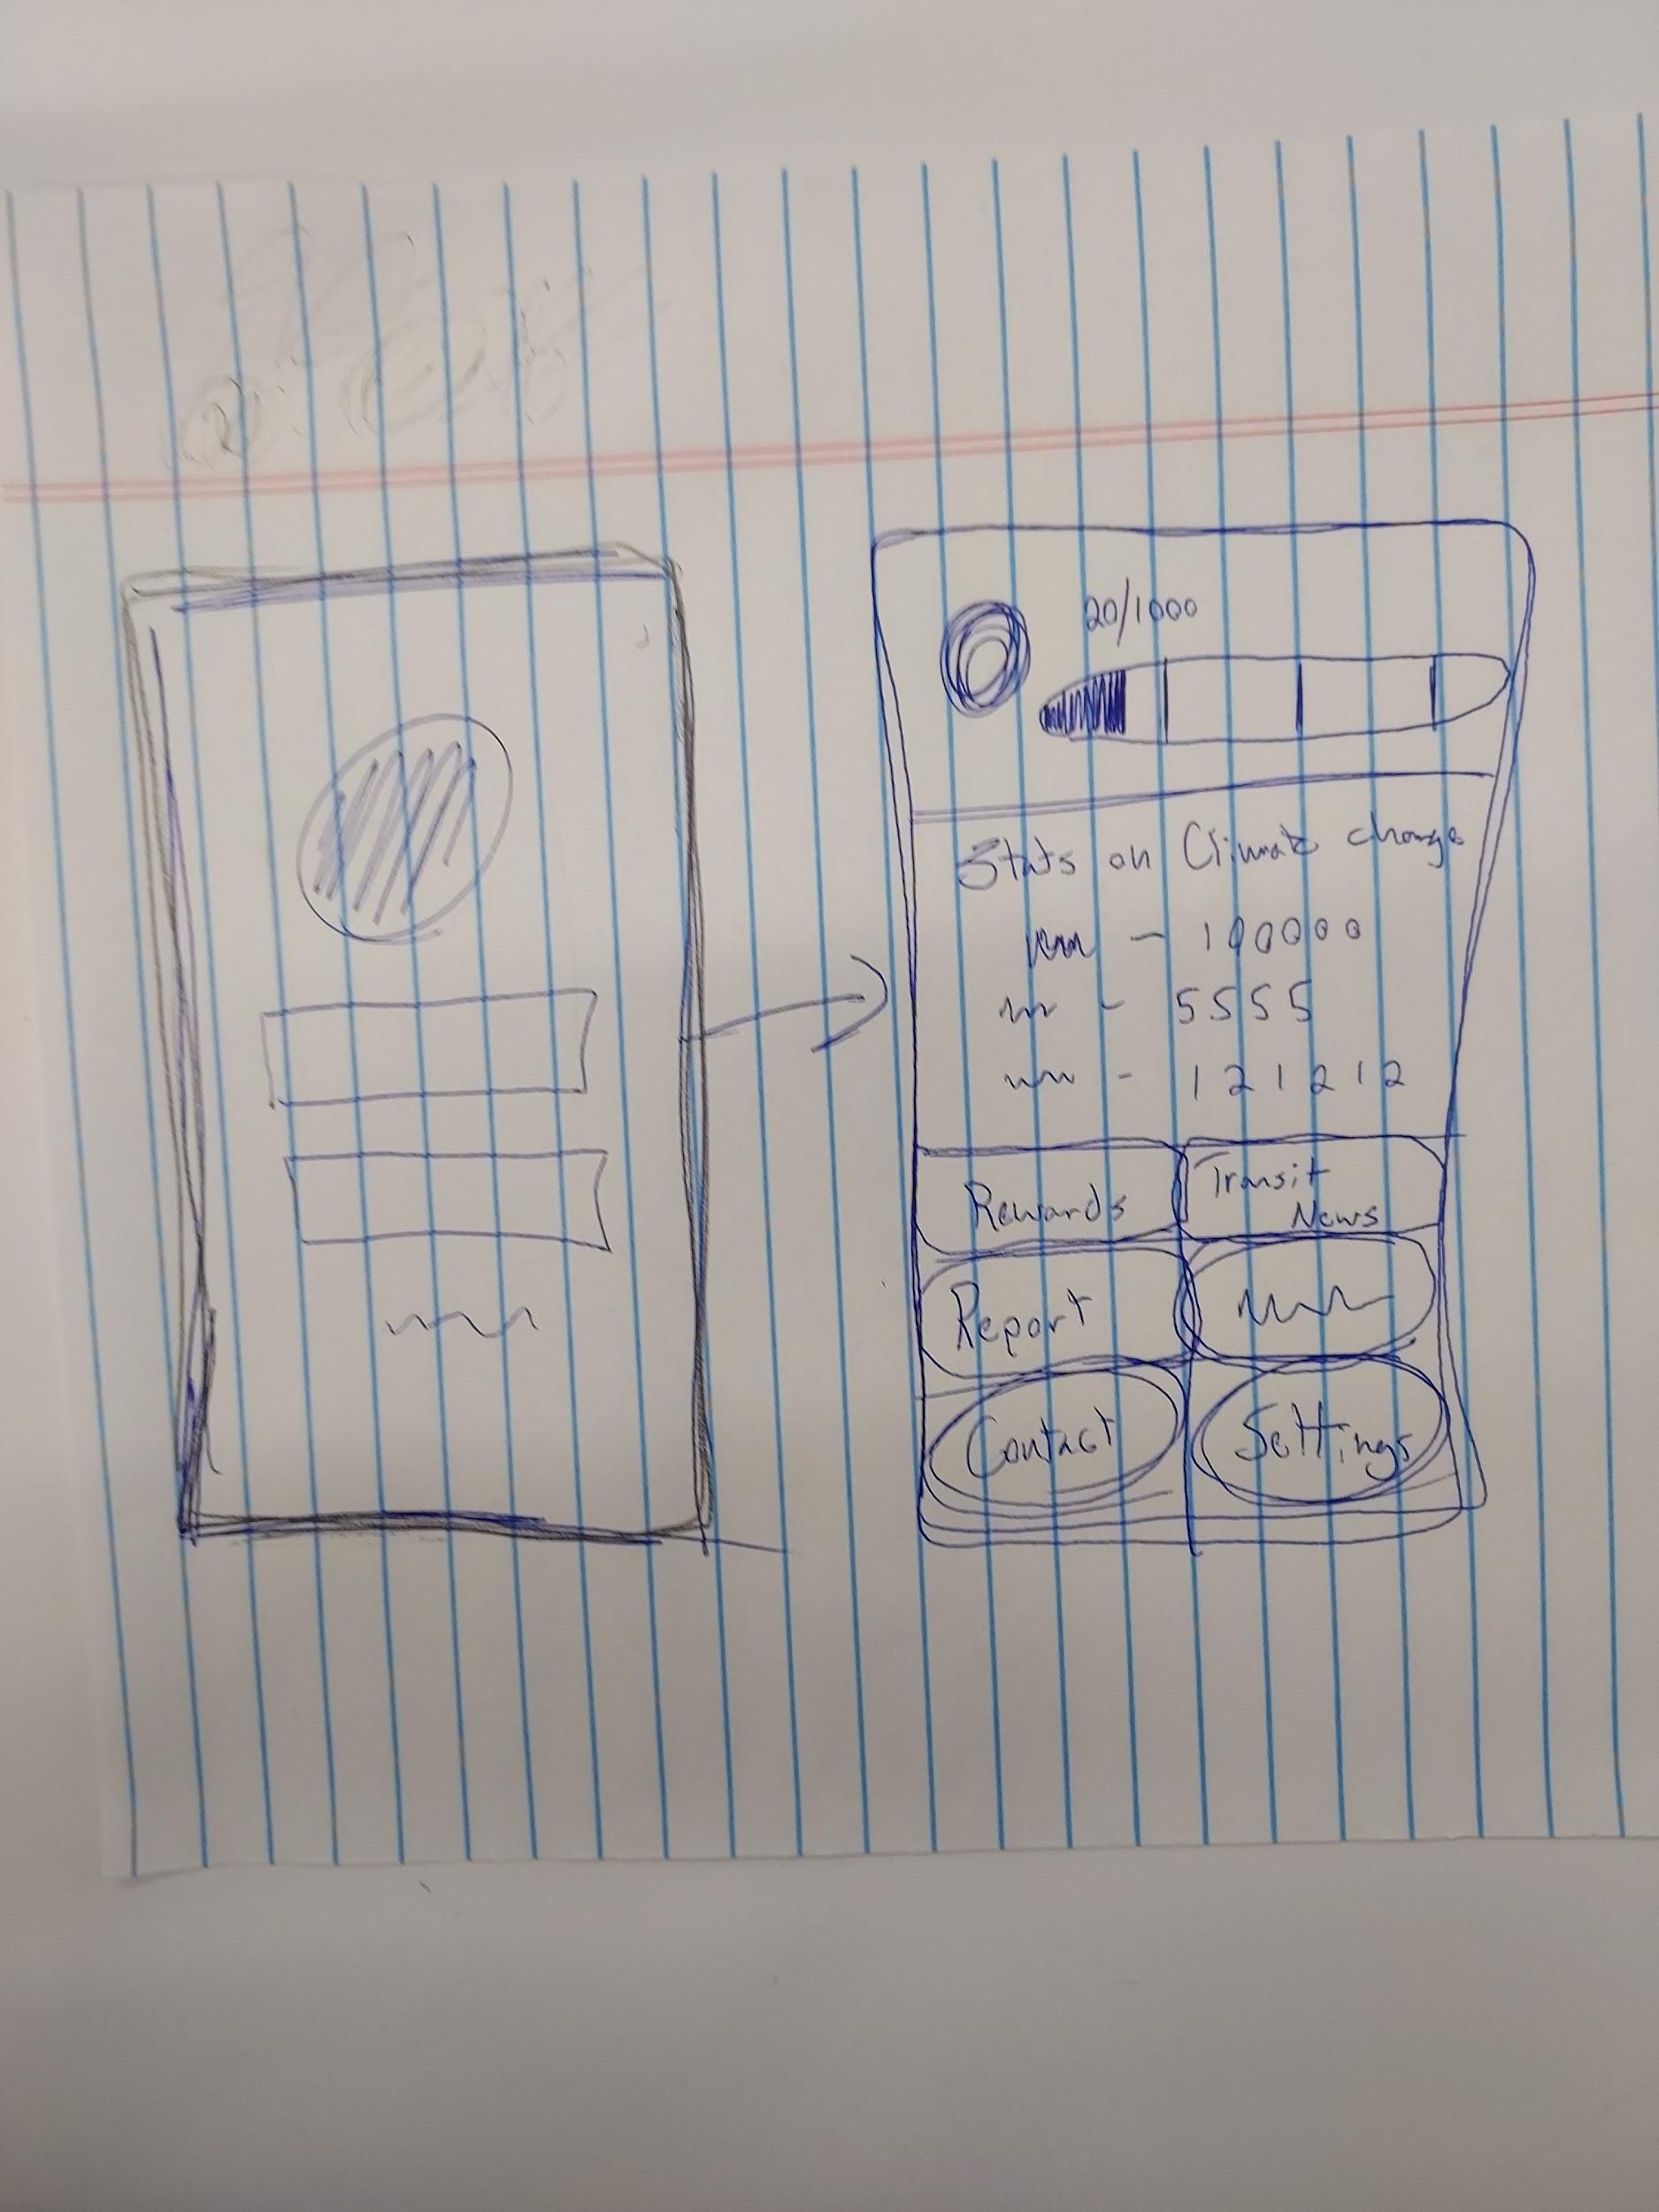 20/1000
Stats on Climate change
- 100000
- 5555
- 121212
Rewards
Transit
News
Report
Contact
Settings